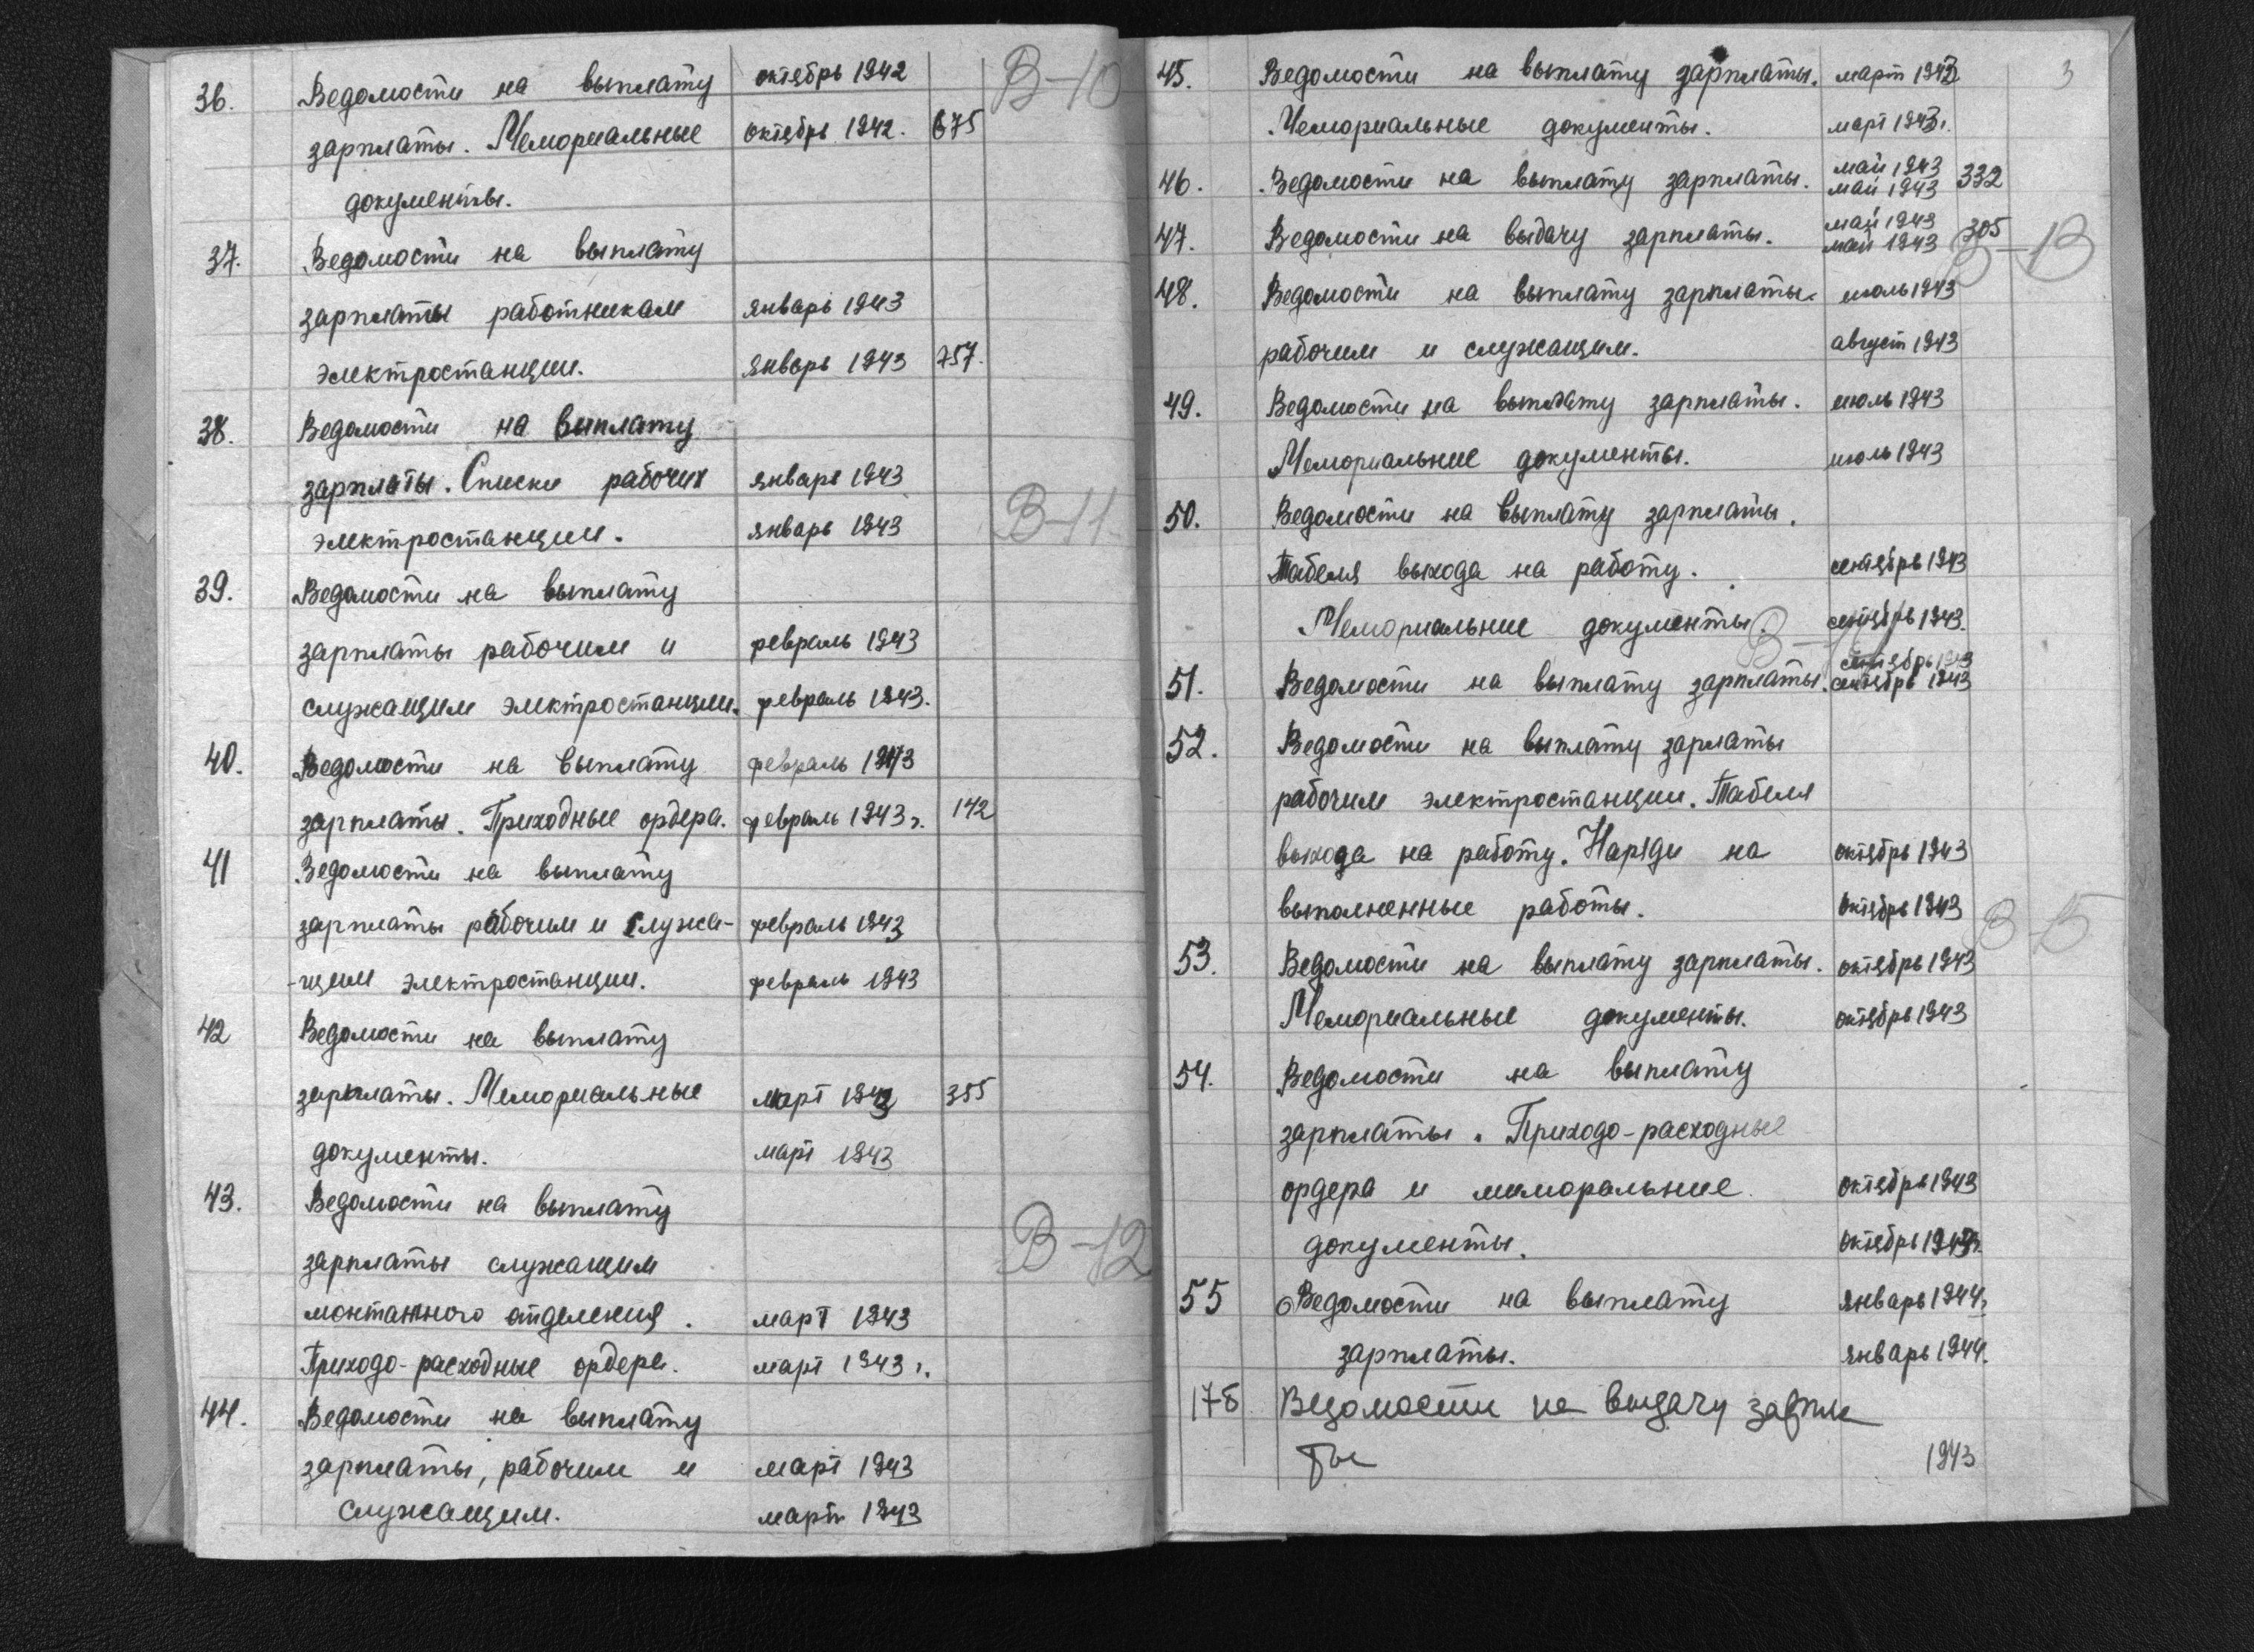 36. Ведомости на выплату октябрь 1942 В-10
зарплаты. Мемориальные октябрь 1942. 675
документы.
37. Ведомости на выплату
зарплаты работникам январь 1943
электростанции. январь 1943 757.
38. Ведомости на выплату
зарплаты. Списки рабочих январь 1943
электростанции. январь 1943 В-11
39. Ведомости на выплату
зарплаты рабочим и февраль 1943
служащим электростанции. февраль 1943.
40. Ведомости на выплату февраль 1943
зарплаты. Приходные ордера. февраль 1943 г. 142
41 Ведомости на выплату
зарплаты рабочим и служа- февраль 1943
-щим электростанции. февраль 1943
42 Ведомости на выплату
зарплаты. Мемориальные март 1943 355
документы. март 1943
43. Ведомости на выплату
зарплаты служащим В-12
монтажного отделения. март 1943
Приходо-расходные ордера. март 1943 г.
44. Ведомости на выплату
зарплаты, рабочим и март 1943
служащим. март 1943
3
45. Ведомости на выплату зарплаты. март 1943
Мемориальные документы. март 1943 г.
46. Ведомости на выплату зарплаты. май 1943 332
май 1943
47. Ведомости на выдачу зарплаты. май 1943 305
май 1943 В-13
48. Ведомости на выплату зарплаты июль 1943
рабочим и служащим. август 1943
49. Ведомости на выплату зарплаты. июль 1943
Мемориальные документы. июль 1943
50. Ведомости на выплату зарплаты.
Табеля выхода на работу. сентябрь 1943
Мемориальные документы. сентябрь 1943.
сентябрь 1943
51. Ведомости на выплату зарплаты. сентябрь 1943
52. Ведомости на выплату зарлаты
рабочим электростанции. Табеля
выхода на работу. Наряди на октябрь 1943
выполненные работы. октябрь 1943 В-15
53. Ведомости на выплату зарплаты. октябрь 1943
Мемориальные документы. октябрь 1943
54. Ведомости на выплату
зарплаты. Приходо-расходные
ордера и мемориальные октябрь 1943
документы. октябрь 1943 г.
55 Ведомости на выплату январь 1944 г.
зарплаты. январь 1944.
Ведомости на выдачу зарпла
ты 1943